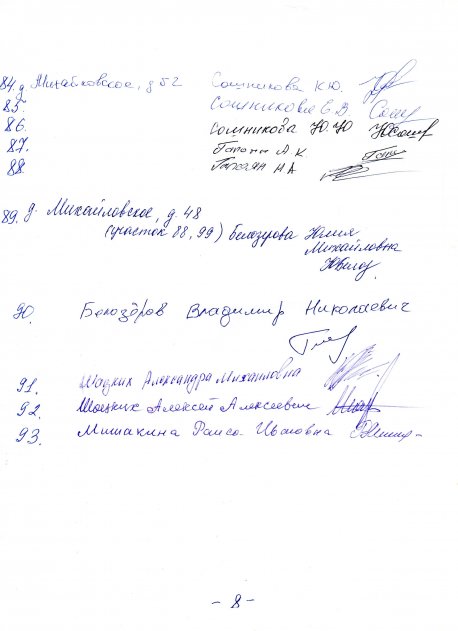 84. д. Михайловское, д 52 Сошникова К.Ю.
85. Сошникова Е.В.
86. Сошникова Ю.Ю.
87. А.К
88. Н А
89. д. Михайловское, д. 48
(участок 88, 99) Белозурова Юлия
Михайловна
90. Белозёров Владимир Николаевич
91. Александра Михайловна
92. Алексей Алексеевич
93. Мишакина Раиса Ивановна
- 8 -